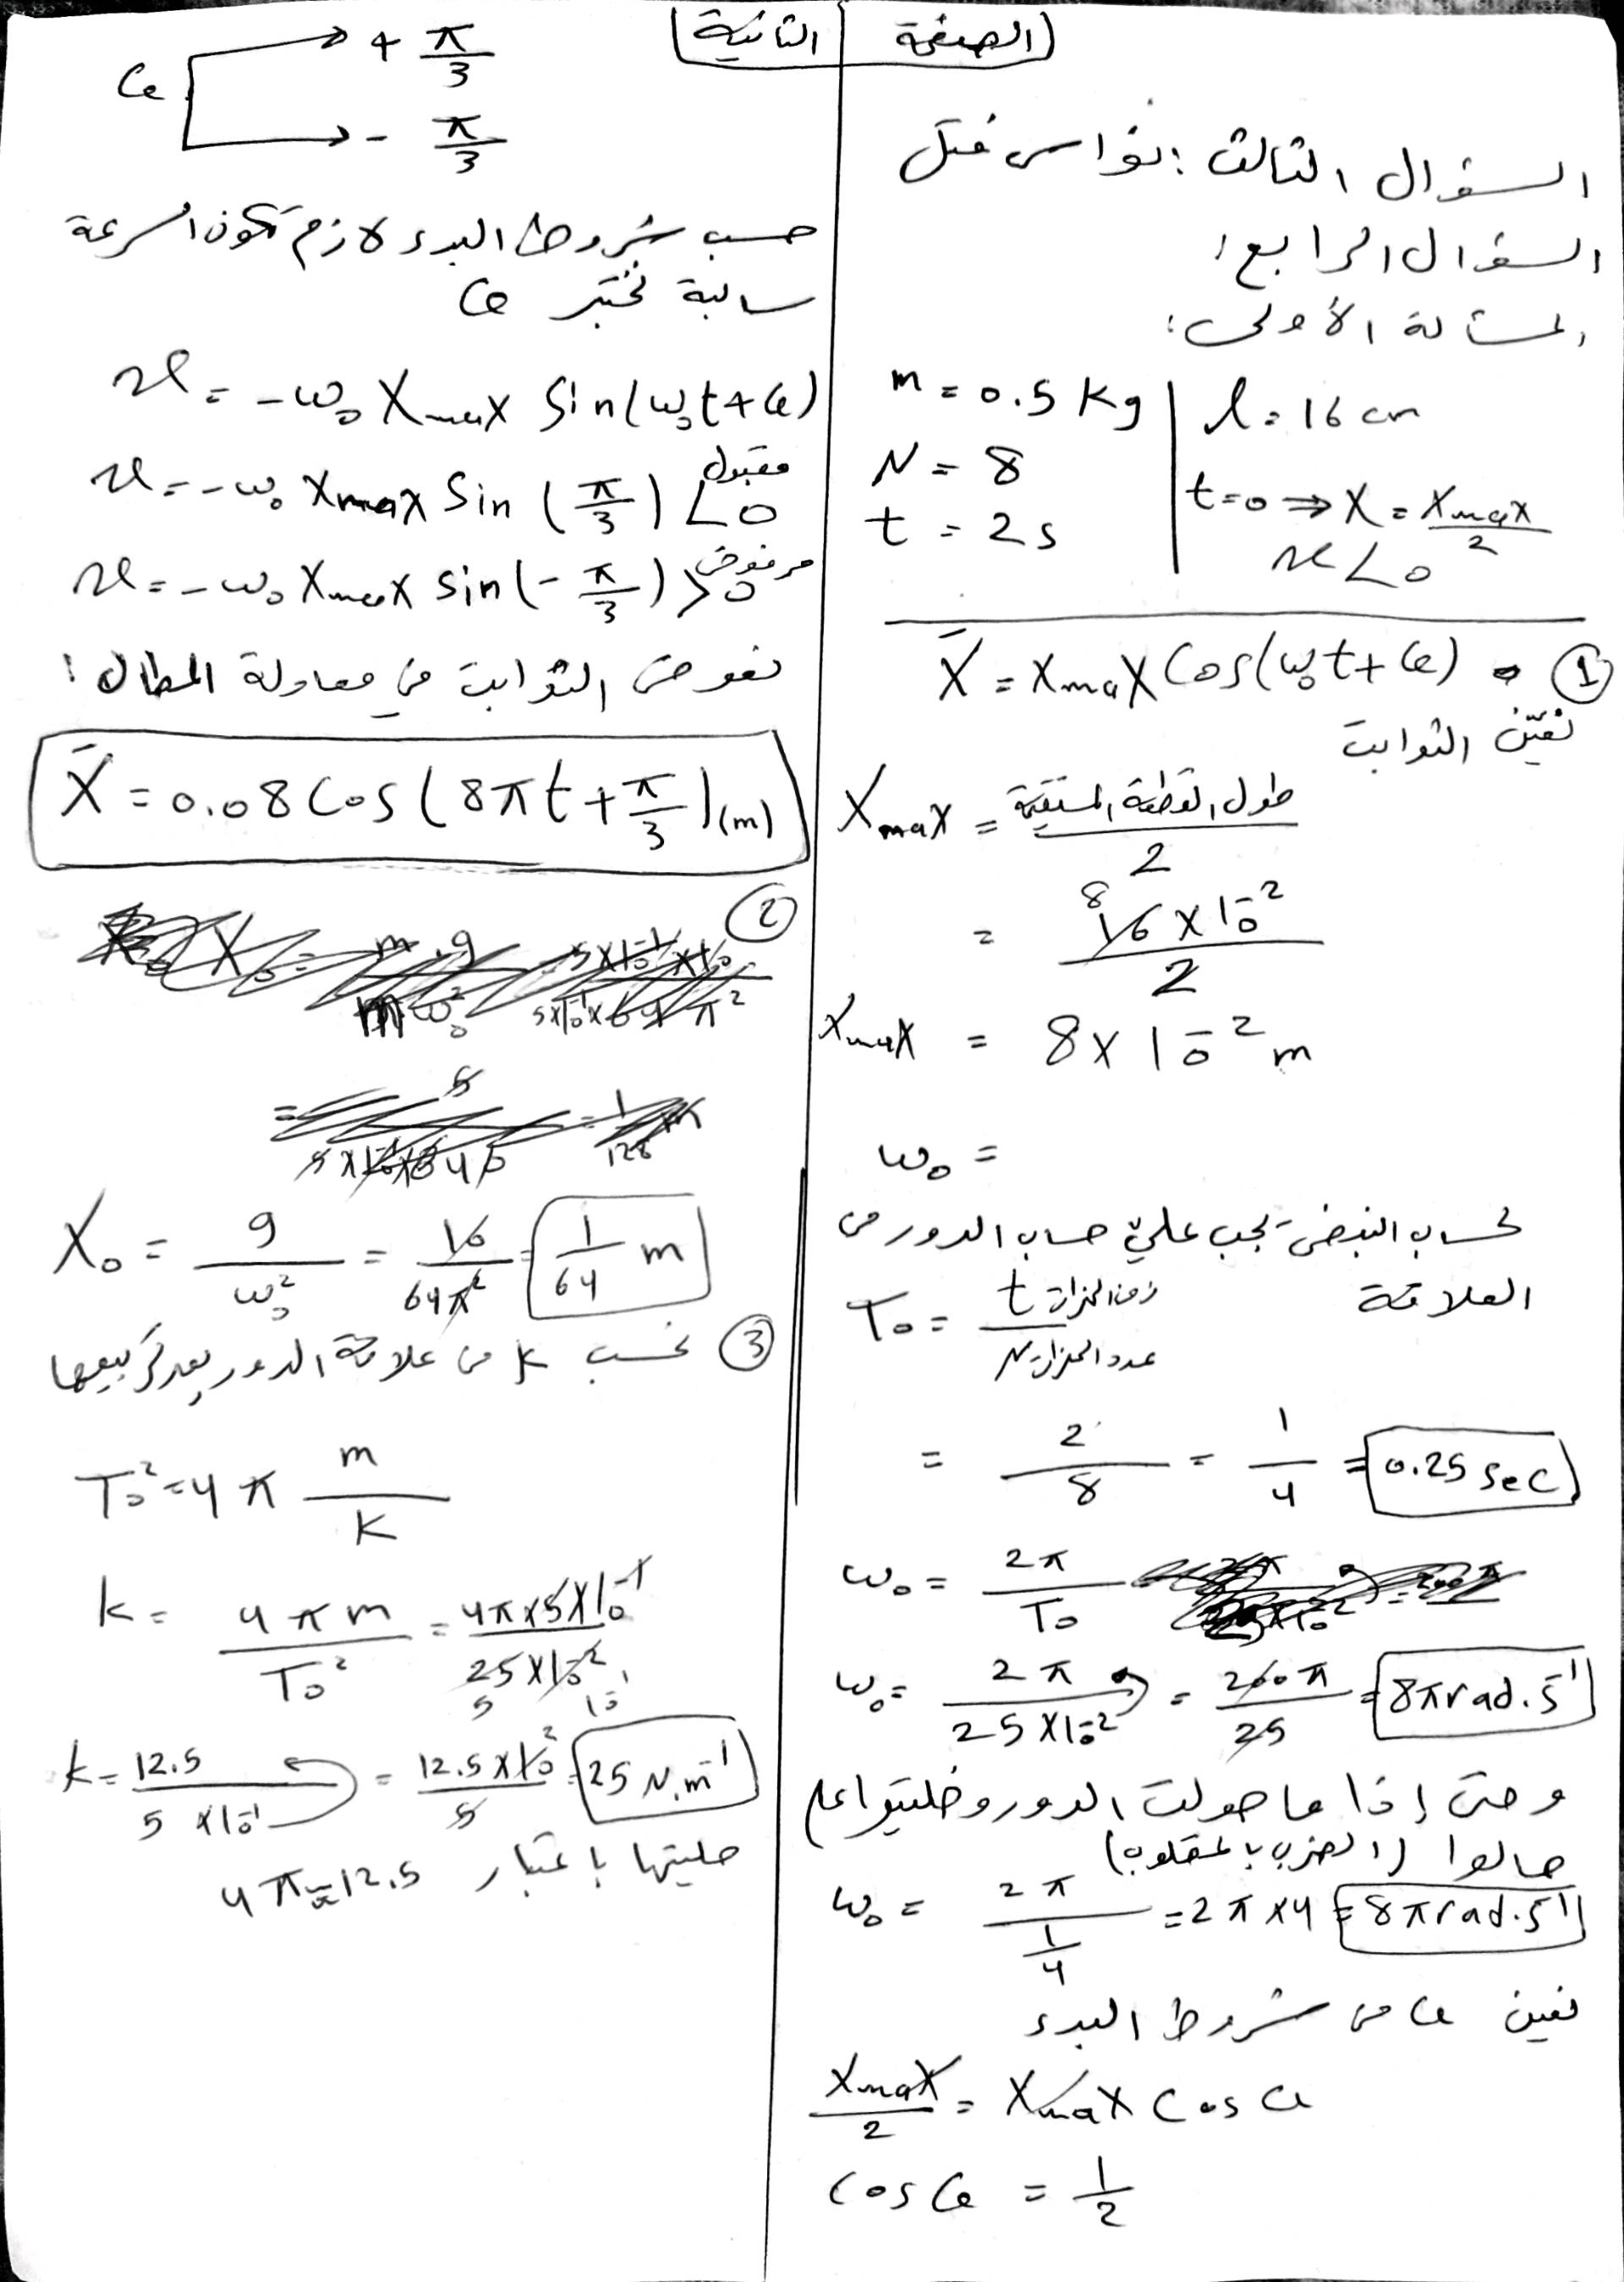 الصفحة الثانية
السؤال الثالث: نواس فتل
السؤال الرابع:
المسألة الأولى:
m = 0.5 kg
N = 8
t = 2 s
l = 16 cm
t=0 ⇒ X = Xmax/2
v < 0
① X̄ = Xmax Cos(ω₀t+φ)
نعيّن الثوابت
Xmax = طول القطعة المستقيمة / 2
= 16 × 10⁻² / 2
8
Xmax = 8 × 10⁻² m
ω₀ =
لحساب النبض يجب عليّ حساب الدور من
العلاقة
T₀ = t زمن الهزات / عدد الهزات N
= 2/8 = 1/4 = 0.25 sec
ω₀ = 2π/T₀
ω₀ = 2π / 25×10⁻² = 200π/25 = 8π rad.s⁻¹
وحتى إذا ما حولت الدور وخليتو ع
حالوا (الضرب بالمقلوب)
ω₀ = 2π / (1/4) = 2π×4 = 8π rad.s⁻¹
نعين φ من شروط البدء
Xmax/2 = Xmax Cos φ
Cos φ = 1/2
φ → + π/3
→ - π/3
حسب شروط البدء لازم تكون السرعة
سالبة نختبر φ
v = -ω₀ Xmax Sin(ω₀t+φ)
v = -ω₀ Xmax Sin(π/3) < 0 مقبول
v = -ω₀ Xmax Sin(-π/3) > 0 مرفوض
نعوض الثوابت في معادلة المطال:
X̄ = 0.08 Cos(8πt + π/3) (m)
②
X₀ = g/ω₀² = 10/64π² = 1/64 m
③ نحسب k من علاقة الدور بعد تربيعها
T₀² = 4π m/k
k = 4πm/T₀² = 4π×5×10⁻¹ / 25×10⁻²
5 10⁻¹
k = 12.5 / 5×10⁻¹ = 12.5×10² / 5 = 25 N.m⁻¹
حليتها باعتبار 4π≈12.5